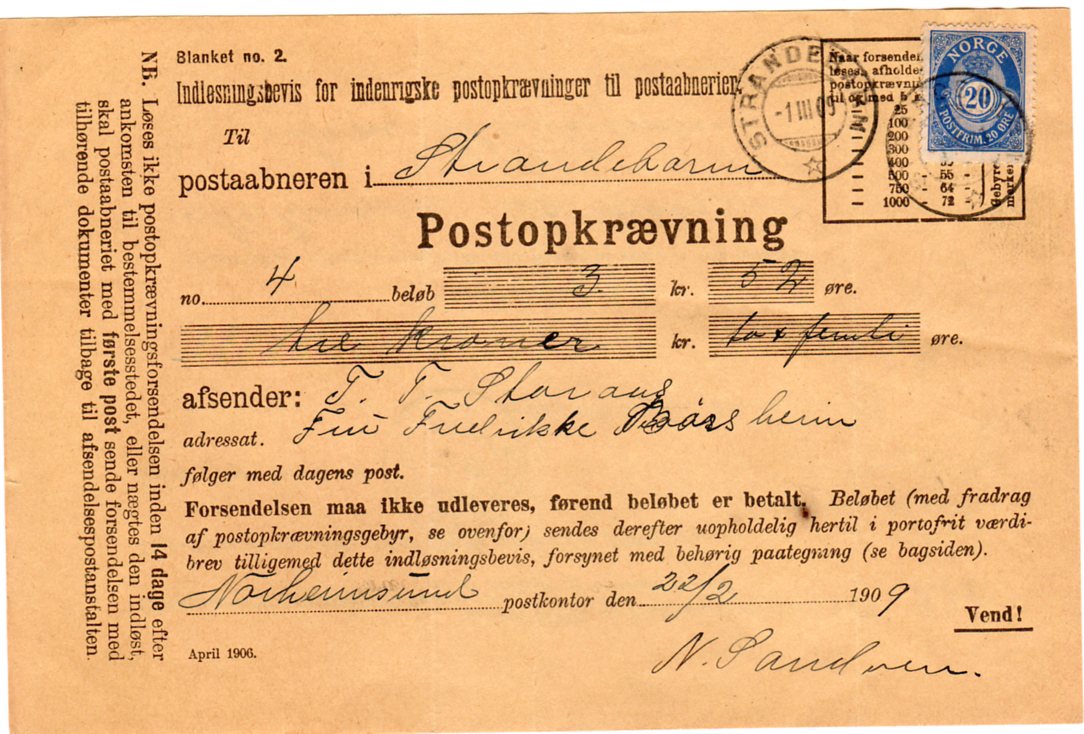 Blanket no. 2.
Indløsningsbevis for indenrigske postopkrævninger til postaabnerier.
Til
postaabneren i Strandebarm
Postopkrævning
no. 4 beløb 3 kr. 52 øre.
tre kroner kr. to x femti øre.
afsender: T. T. Storaas
adressat. Fru Fredrikke Børsheim
følger med dagens post.
Forsendelsen maa ikke udleveres, førend beløbet er betalt. Beløbet (med fradrag
af postopkrævningsgebyr, se ovenfor) sendes derefter uopholdelig hertil i portofrit værdi-
brev tilligemed dette indløsningsbevis, forsynet med behørig paategning (se bagsiden).
Norheimsund postkontor den 22/2 1909
Vend!
April 1906.
N. Sandven.
NB. Løses ikke postopkrævningsforsendelsen inden 14 dage efter
ankomsten til bestemmelsesstedet, eller nægtes den indløst,
skal postaabneriet med første post sende forsendelsen med
tilhørende dokumenter tilbage til afsendelsespostanstalten.
STRANDEBARM
-1 III 09
Naar forsendel
løses, afholde
postopkrævni
til og med 5 k
25
100
200
300
400
500 - 55 -
750 - 64 -
1000 - 72 -
gebyre
mærker
NORGE
20
POSTFRIM. 20 ØRE